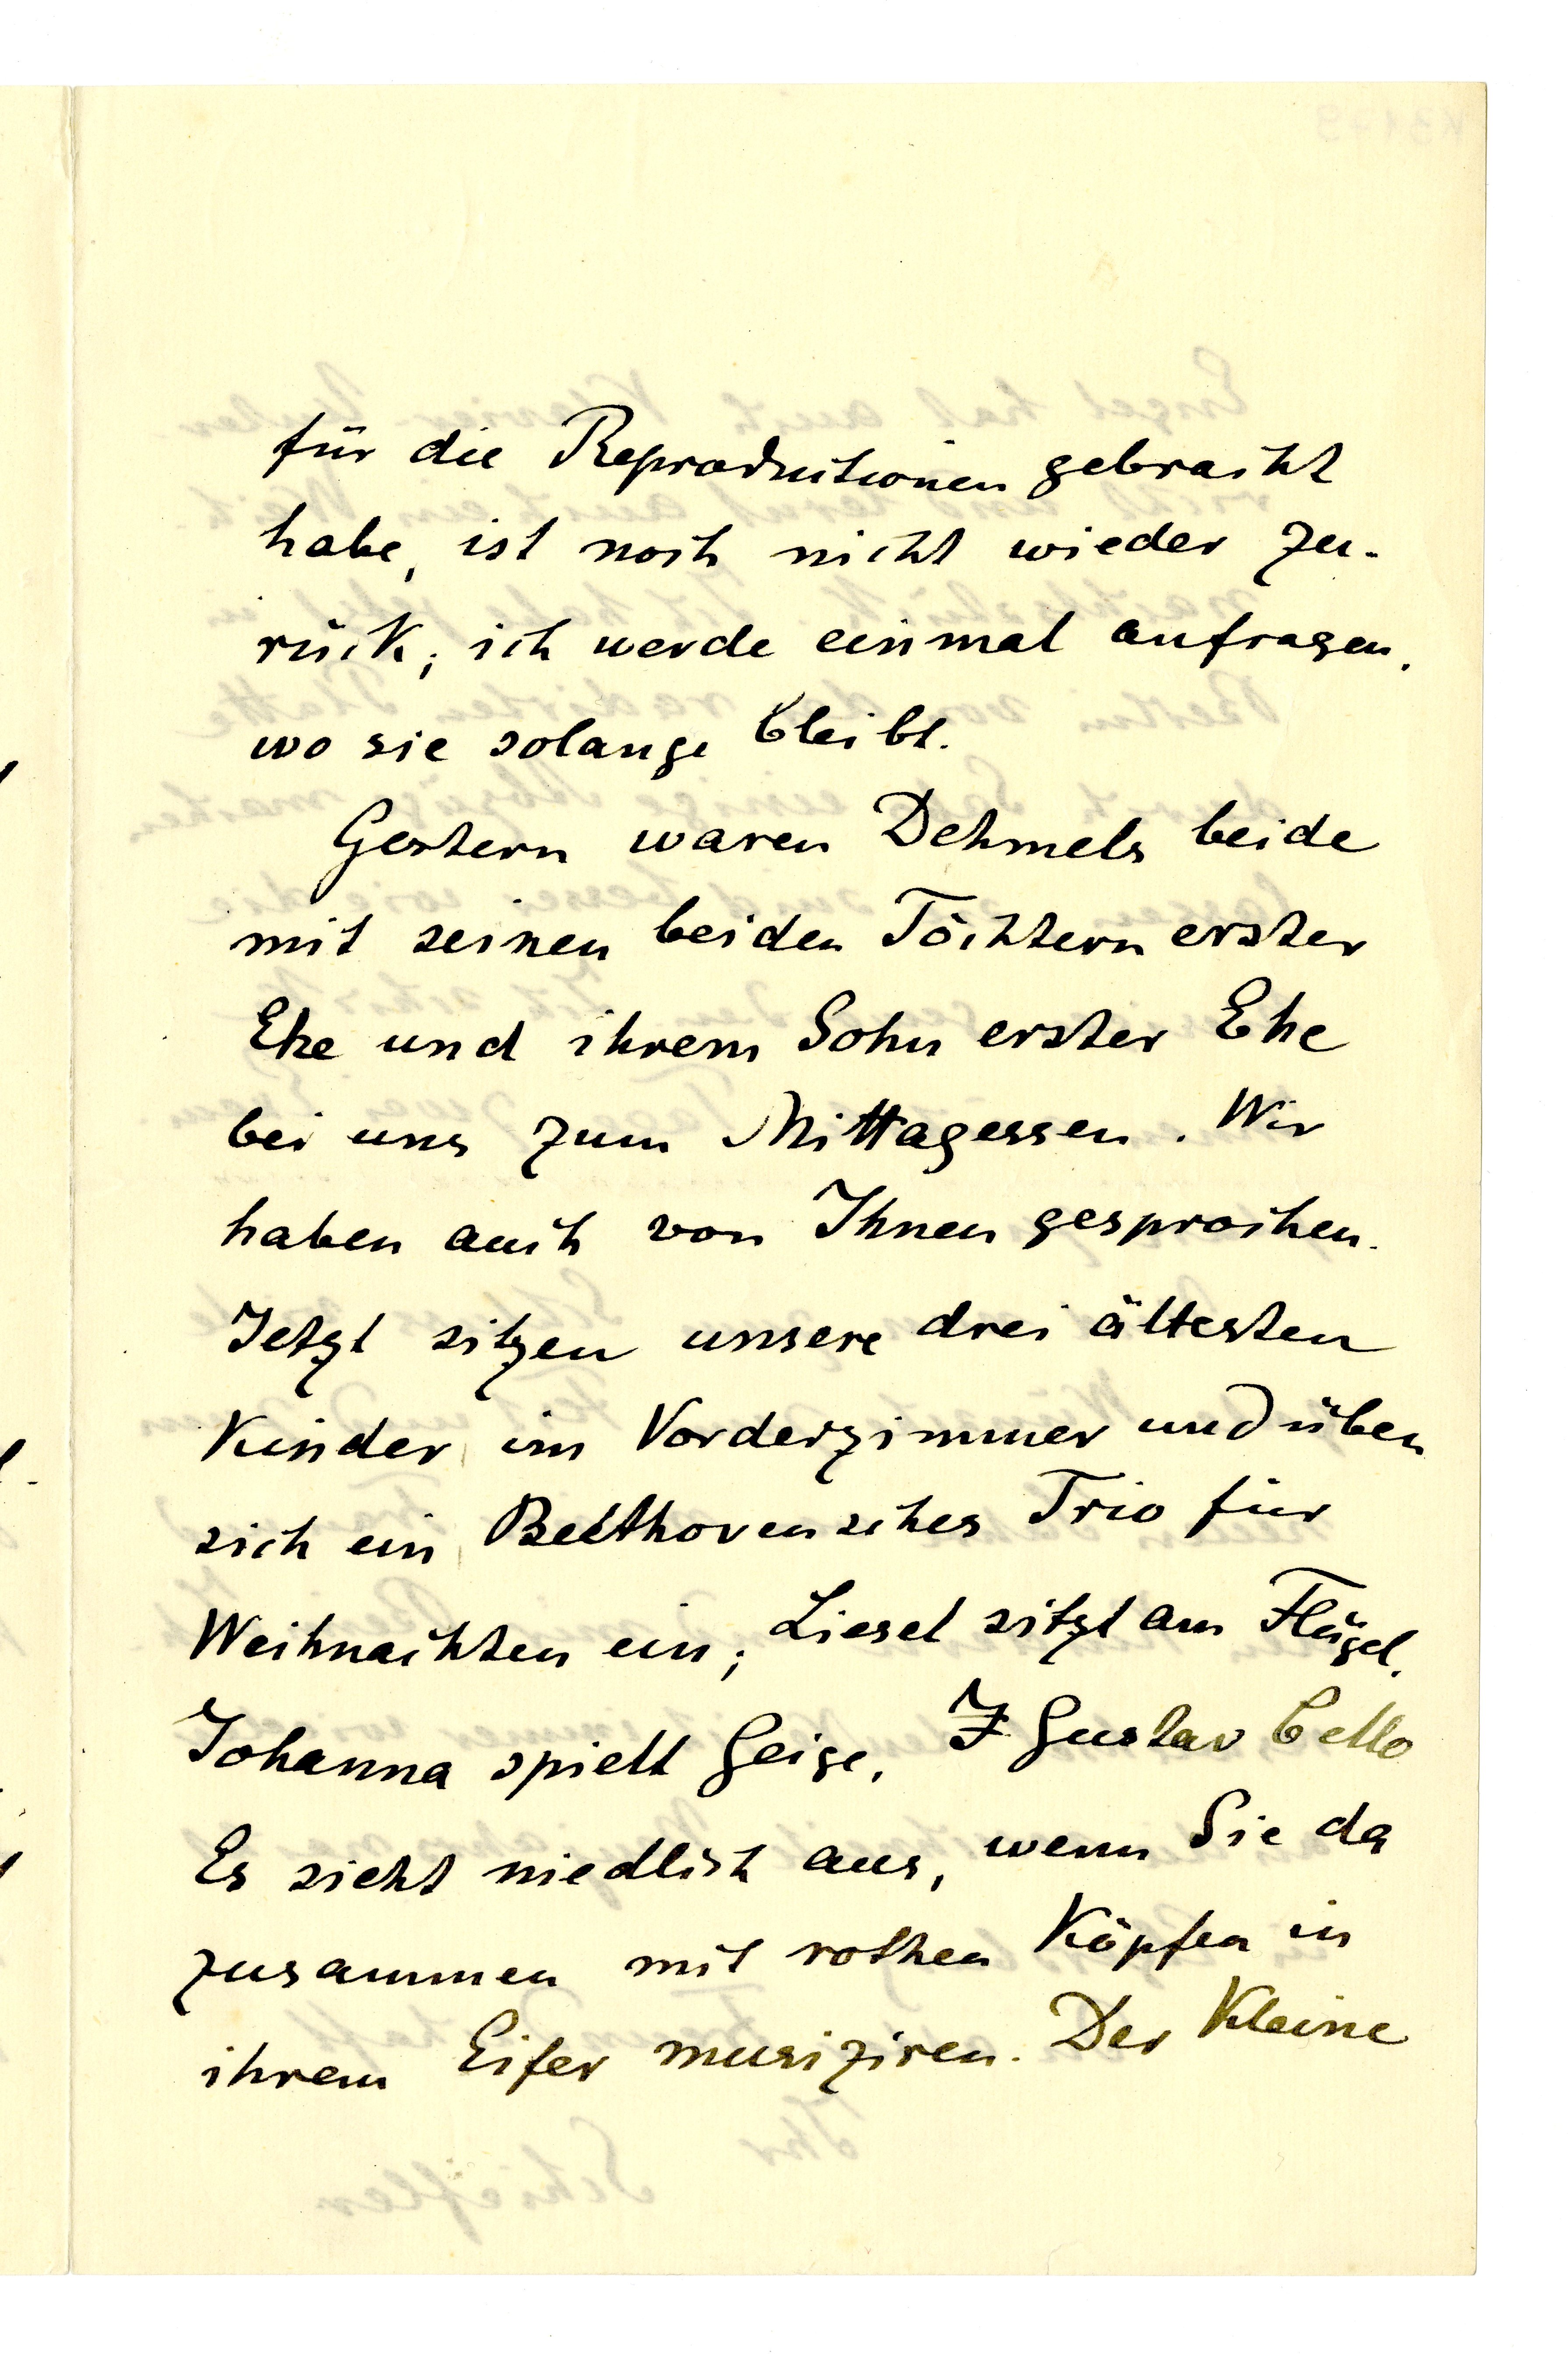 für die Reproductionen gebracht
habe, ist noch nicht wieder zu-
rück; ich werde einmal anfragen,
wo sie solange bleibt.
Gestern waren Dehmels beide
mit seinen beiden Töchtern erster
Ehe und ihrem Sohn erster Ehe
bei uns zum Mittagessen. Wir
haben auch von Ihnen gesprochen.
Jetzt sitzen unsere drei ältesten
Kinder im Vorderzimmer und üben
sich ein Beethovensches Trio für
Weihnachten ein; Liesel sitzt am Flügel,
Johanna spielt Geige, Gustav Cello
Es sieht niedlich aus, wenn Sie da
zusammen mit rothen Köpfen in
ihrem Eifer musiziren. Der Kleine